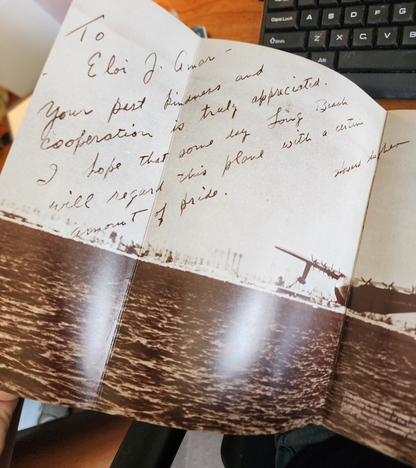 To
Eloi J. Amar -
Your past kindness and
cooperation is truly appreciated.
I hope that some day Long Beach
will regard this plane with a certain
amount of pride.
Howard Hughes